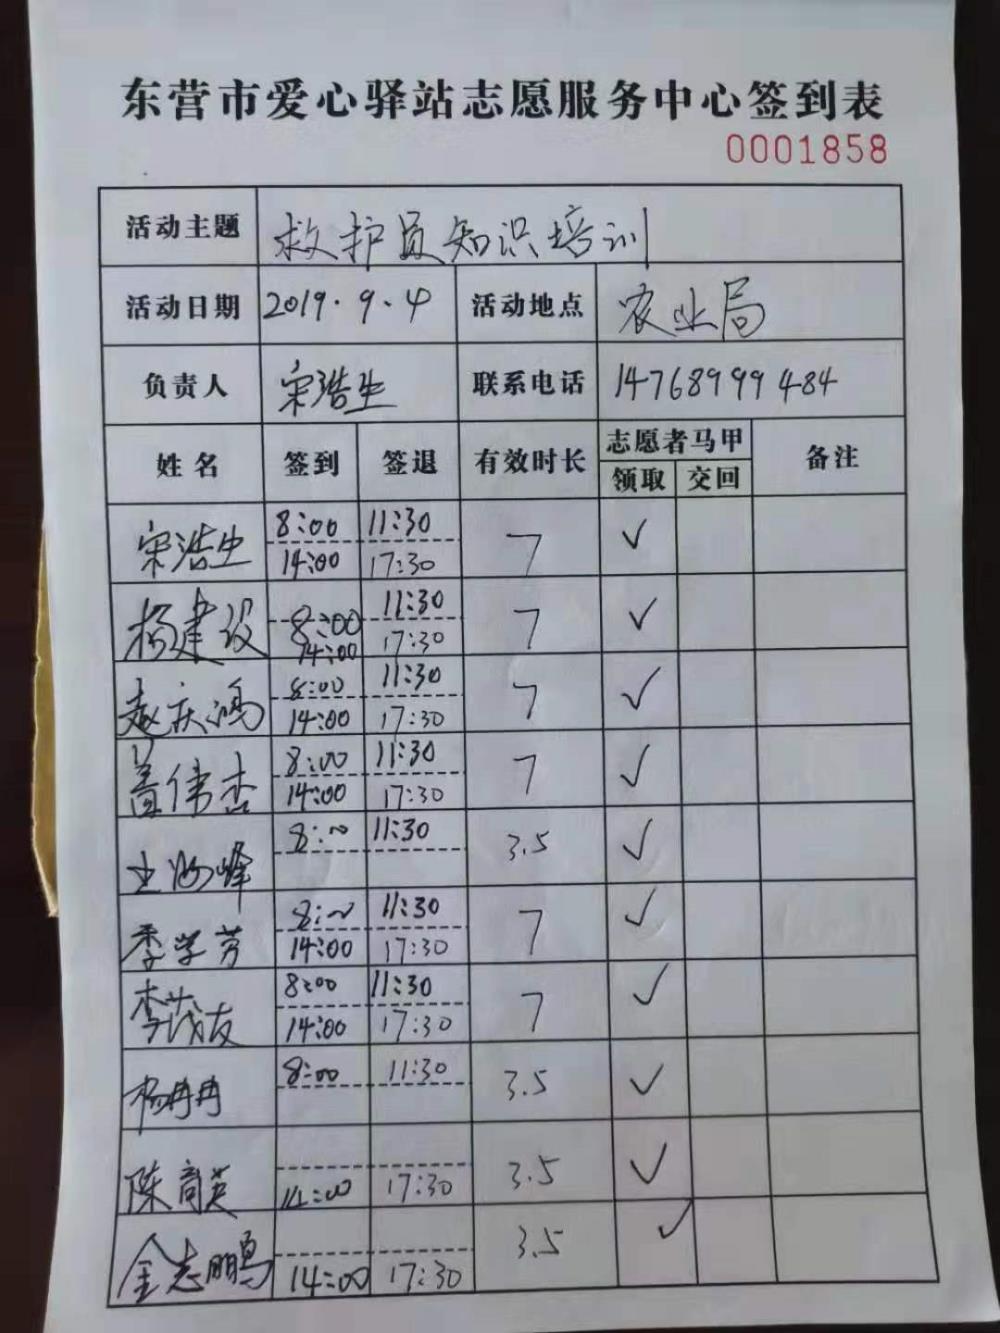 东营市爱心驿站志愿服务中心签到表
0001858
活动主题 救护员知识培训
活动日期 2019.9.4 活动地点 农业局
负责人 宋浩生 联系电话 14768999484
姓名 签到 签退 有效时长 志愿者马甲 备注
领取 交回
宋浩生 8:00 11:30 7 ✓
14:00 17:30
杨建设 8:00 11:30 7 ✓
14:00 17:30
赵庆鸿 8:00 11:30 7 ✓
14:00 17:30
盖伟杰 8:00 11:30 7 ✓
14:00 17:30
王海峰 8:00 11:30 3.5 ✓
季学芳 8:00 11:30 7 ✓
14:00 17:30
李茂友 8:00 11:30 7 ✓
14:00 17:30
杨冉冉 8:00 11:30 3.5 ✓
陈 英 14:00 17:30 3.5 ✓
金志鹏 14:00 17:30 3.5 ✓